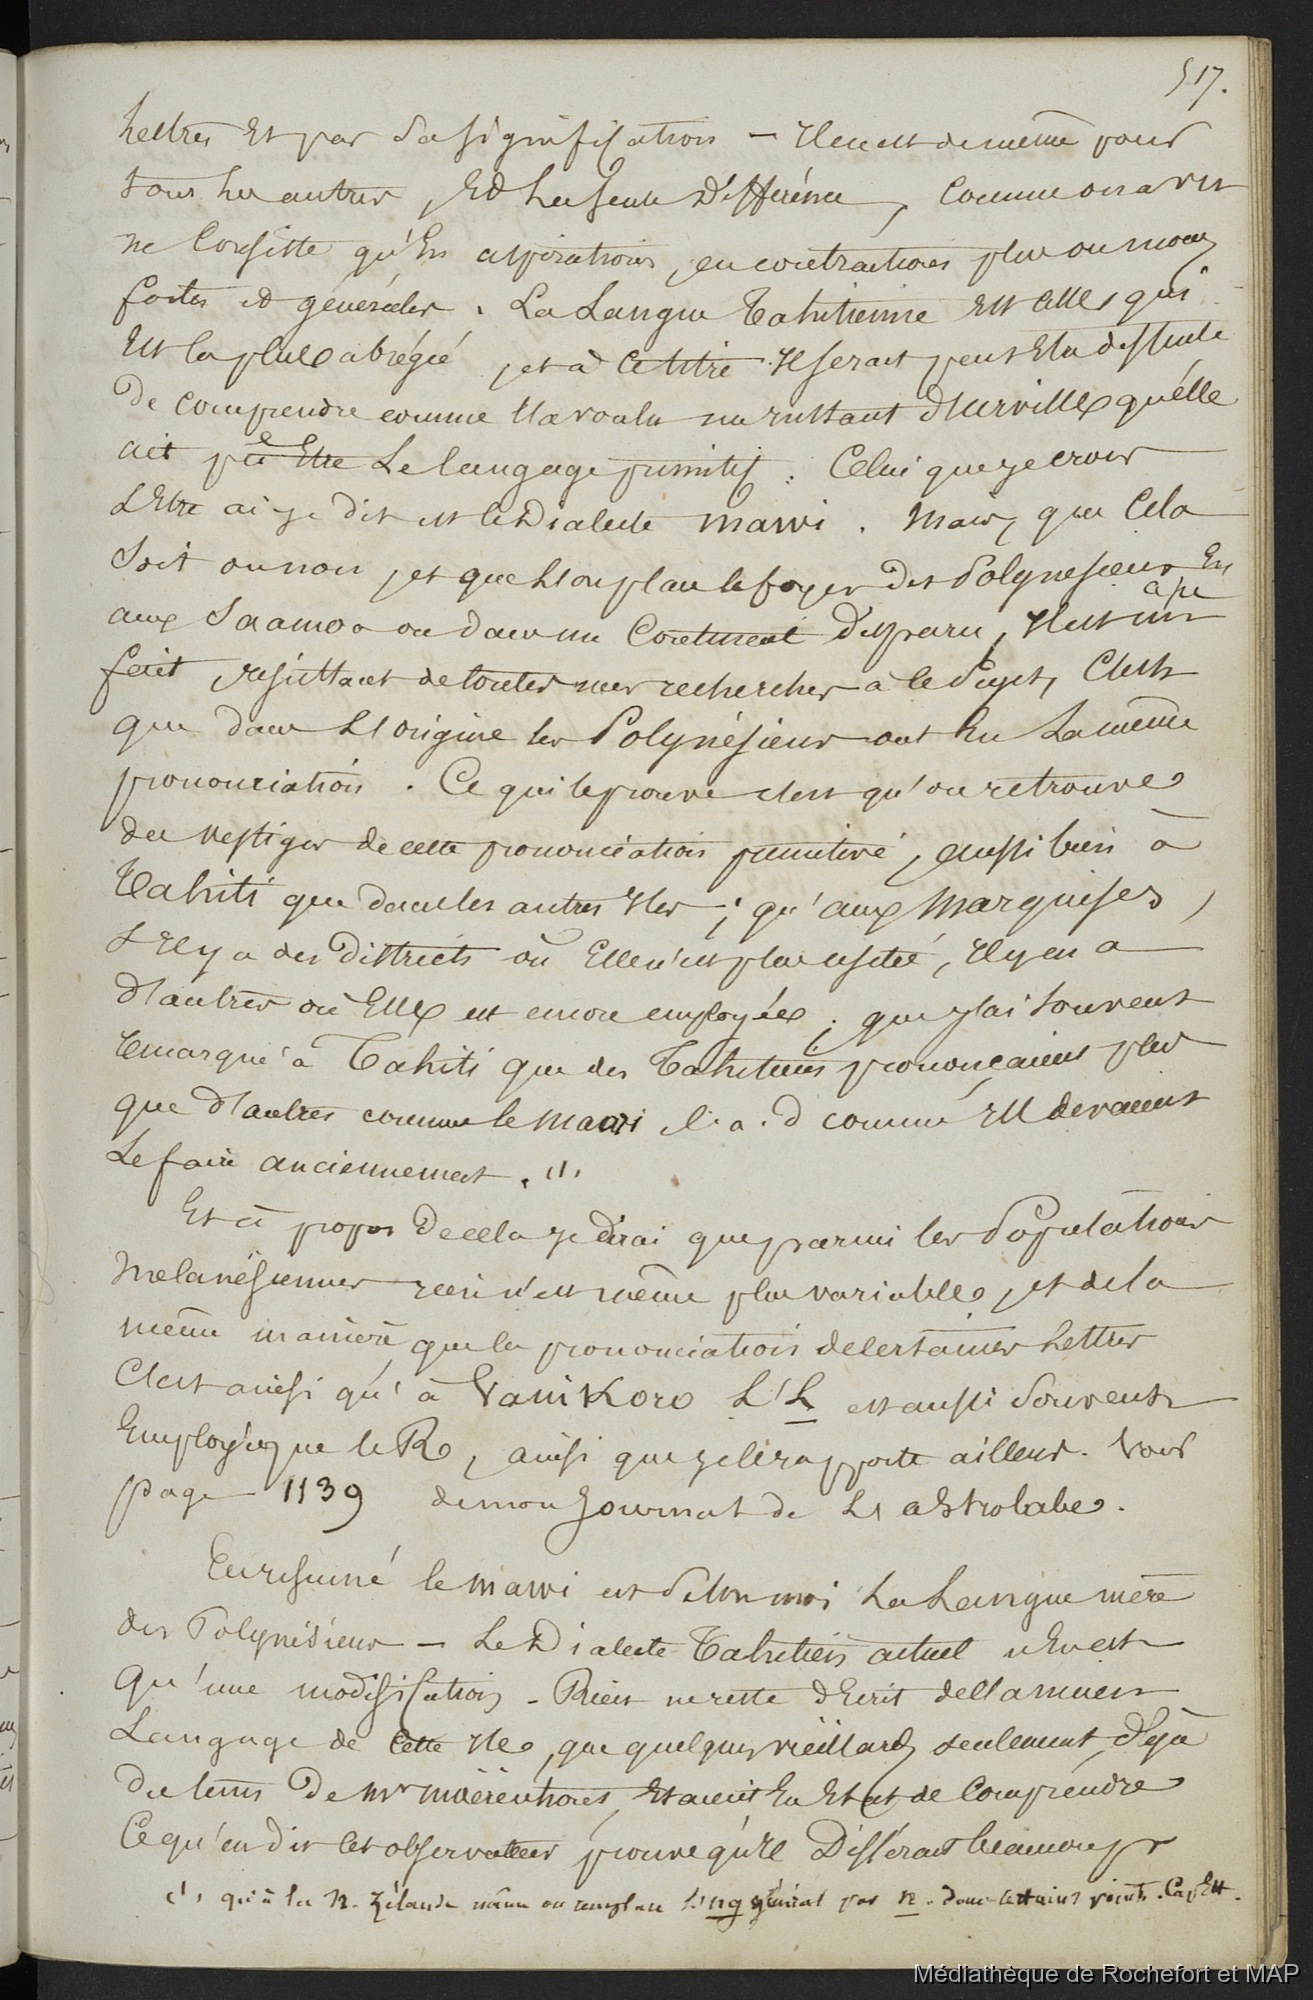 517.
lettres Et par Sa signification — Il en est de même pour
tous les autres, Et La Seule Différence, Comme on a vu
ne Consiste qu'En aspirations, en contractions plus ou moins
fortes et générales. La Langue Tahitienne Est Celle qui
Est la plus abrégée, et à Ce titre Il serait peut Etre difficile
De comprendre comme l'a voulu un instant d'Urville qu'elle
ait pu Etre Le langage primitif. Celui que je crois
L'Etre ai-je dit est le Dialecte mawi. Mais, que Cela
Soit ou non, et que L'on place le foyer des Polynesiens En
aux Saamoa ou dans un Continent Disparu, Il est un
fait, résultant de toutes mes recherches à ce Sujet, C'est
que dans L'origine les Polynésiens ont Eu La même
prononciation. Ce qui le prouve c'est qu'on retrouve
des vestiges de cette prononciation primitive, aussi bien à
Tahiti que dans les autres Iles; qu'aux Marquises,
S'Il y a des Districts où Elle n'est plus usitée, Il y en a
d'autres où Elle est encore employée; que j'ai Souvent
remarqué à Tahiti que des Tahitiens prononçaient plus
que d'autres comme le maori c. a. d comme Ils devaient
Le faire anciennement. (1)
Et à propos De cela je dirai que parmi les Populations
Mélanésiennes rien n'est même plus variable, et de la
même manière que la prononciation de certaines Lettres
C'est ainsi qu'à Vanikoro L'L est aussi Souvent
Employée que le R, ainsi que je le rapporte ailleurs. Voir
page 1139 de mon Journal de L'astrolabe.
En résumé le mawi est Selon moi La Langue mère
des Polynésiens — Le Dialecte Tahitien actuel n'En est
qu'une modification – Rien ne reste d'Ecrit de l'ancien
Langage de Cette Ile, que quelques vieillards seulement, déjà
du tems De Mr Moërenhout, Etaient En Etat de Comprendre
Ce qu'en dit Cet observateur prouve qu'Il Différait beaucoup
(1) qu'à la N. Zélande même on remplace L'ng général par n. dans certains points. Cap Ett.
Médiathèque de Rochefort et MAP